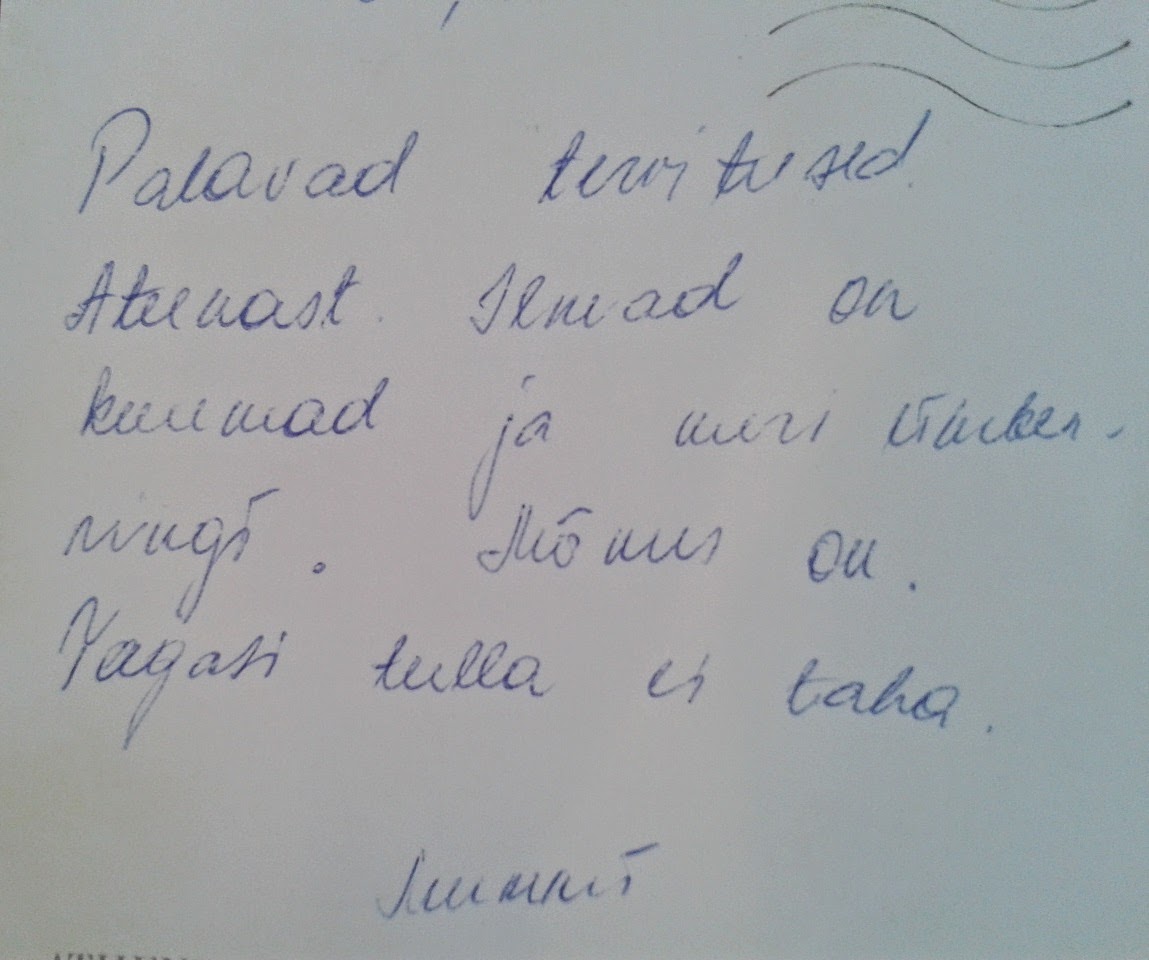 Palavad tervitused
Ateenast. Ilmad on
kuumad ja meri ümber-
ringi. Mõnus on.
Tagasi tulla ei taha.
Mummi